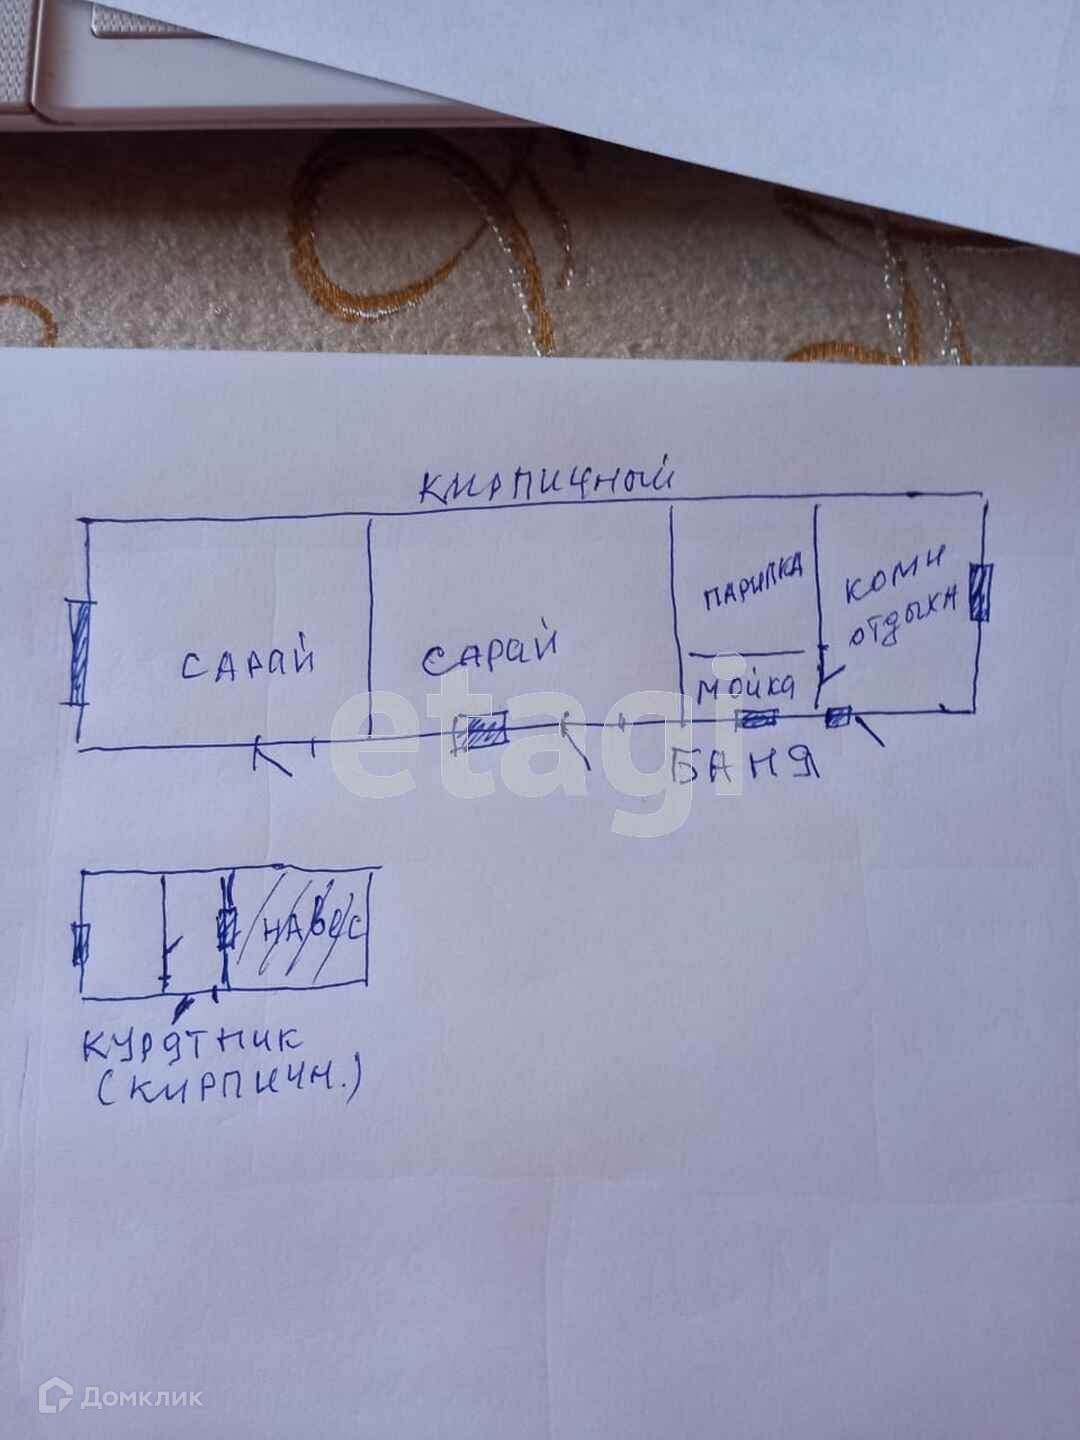 КИРПИЧНЫЙ
САРАЙ
САРАЙ
ПАРИЛКА
МОЙКА
КОМН
ОТДЫХА
БАНЯ
etagi
НАВЕС
КУРЯТНИК
(КИРПИЧН.)
Домклик